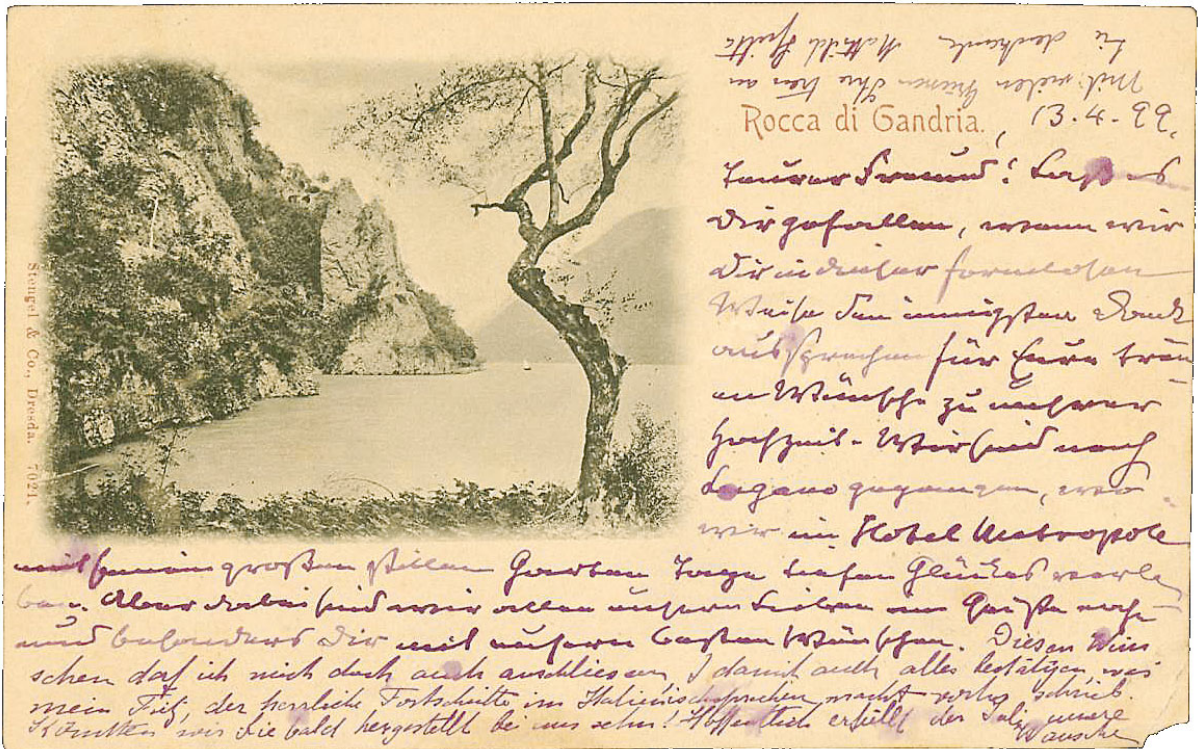 Mit vielen Grüssen Ihre
Sie Mathilde
Rocca di Gandria.
13.4.99.
Teurer Freund! Lass es
Dir gefallen, wenn wir
Dir in dieser formlosen
Weise den innigsten Dank
aussprechen für Eure treu
en Wünsche zu unserer
Hochzeit. Wir sind nach
Lugano gegangen, wo
wir im Hotel Metropole
mit seinem großen stillen Garten Tage tiefen Glückes verle
ben. Aber dabei sind wir allen unsern Lieben im Geiste nahe
und besonders Dir mit unsern besten Wünschen. Diesen Wün
schen darf ich mich doch auch anschliessen, & damit auch alles bestätigen, was
mein Fritz, der herrliche Fortschritte im Italienischsprechen macht vorher schrieb.
Könnten wir Sie bald hergestellt bei uns sehn! Hoffentlich erfüllt der Juli unsere
Wünsche
Stengel & Co., Dresda. 7021.